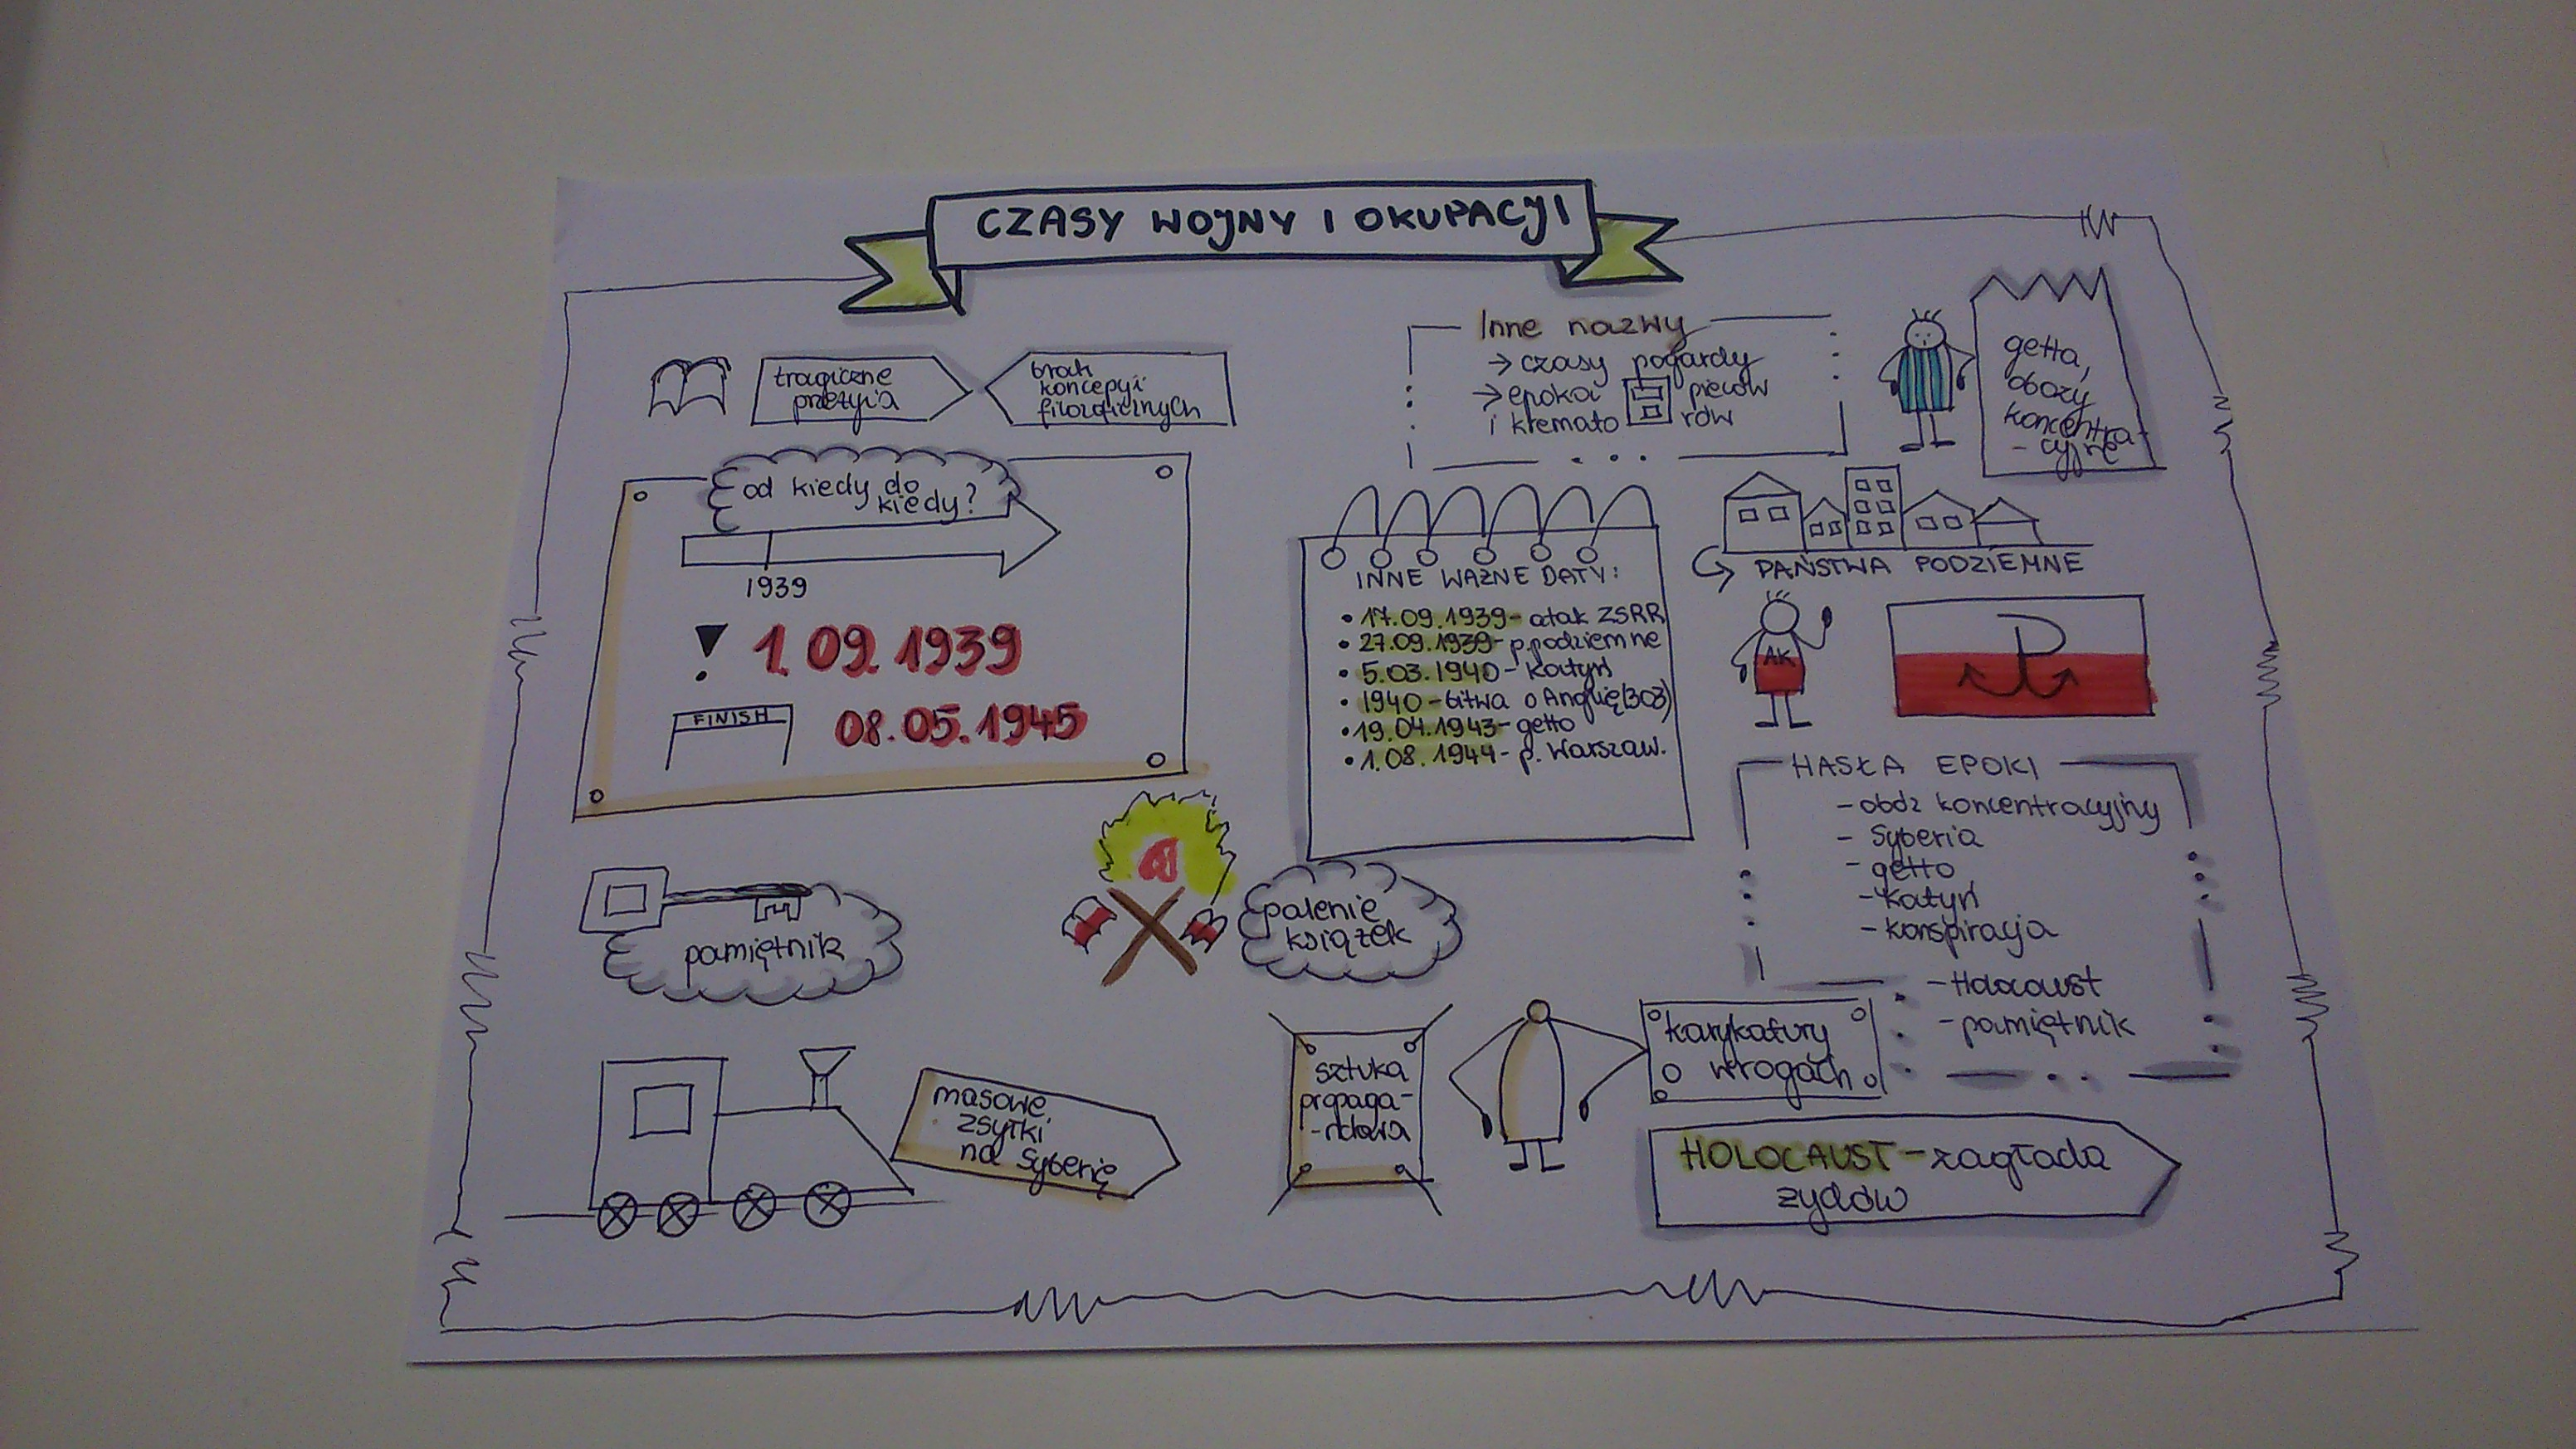 CZASY WOJNY I OKUPACJI
tragiczne
przeżycia
brak
koncepcji
filozoficznych
Inne nazwy
→ czasy pogardy
→ epoka pieców
i krematorów
getta,
obozy
koncentra-
-cyjne
od kiedy do
kiedy?
1939
! 1.09.1939
FINISH
08.05.1945
INNE WAŻNE DATY:
• 17.09.1939- atak ZSRR
• 27.09.1939- p.podziemne
• 5.03.1940- Katyń
• 1940 - bitwa o Anglię(303)
• 19.04.1943- getto
• 1.08.1944- p. Warszaw.
PAŃSTWA PODZIEMNE
AK
P
HASŁA EPOKI
- obóz koncentracyjny
- Syberia
- getto
- Katyń
- konspiracja
- Holocaust
- pamiętnik
pamiętnik
palenie
książek
masowe
zsyłki
na Syberię
sztuka
propaga-
-ndowa
karykatury
wrogach
HOLOCAUST - zagłada
żydów